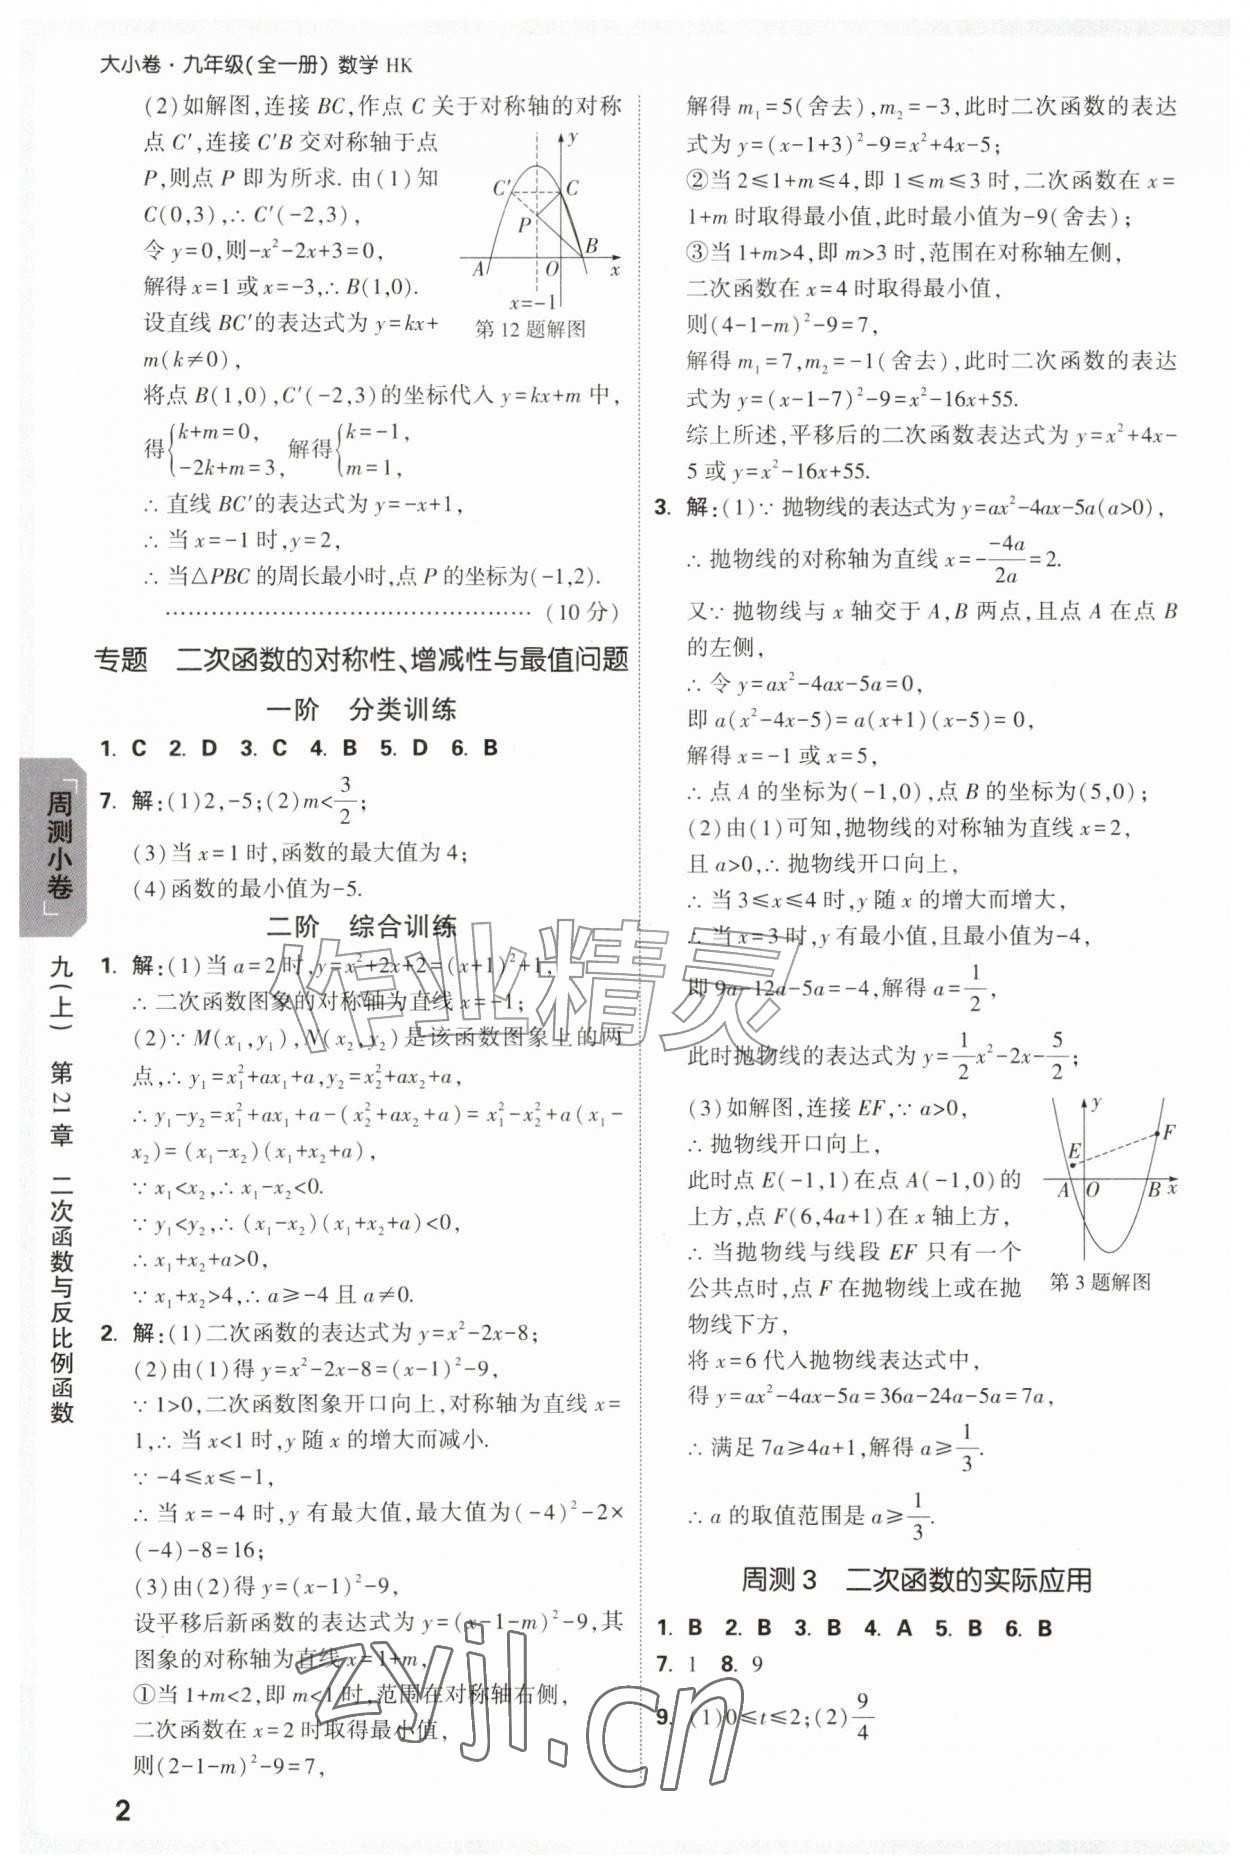 大小卷·九年级(全一册) 数学 HK
(2)如解图,连接 BC,作点 C 关于对称轴的对称
点 C′,连接 C′B 交对称轴于点
P,则点 P 即为所求. 由(1)知
C(0,3),∴ C′(-2,3),
令 y=0,则-x²-2x+3=0,
解得 x=1 或 x=-3,∴ B(1,0).
设直线 BC′的表达式为 y=kx+
m(k≠0),
y
C′
C
P
B
A
O
x
x=-1
第 12 题解图
将点 B(1,0),C′(-2,3)的坐标代入 y=kx+m 中,
得{k+m=0, -2k+m=3, 解得{k=-1, m=1,
∴ 直线 BC′的表达式为 y=-x+1,
∴ 当 x=-1 时,y=2,
∴ 当△PBC 的周长最小时,点 P 的坐标为(-1,2).
…………………………………………… (10 分)
专题 二次函数的对称性、增减性与最值问题
一阶 分类训练
1. C 2. D 3. C 4. B 5. D 6. B
7. 解:(1)2,-5;(2)m<3/2;
(3)当 x=1 时,函数的最大值为 4;
(4)函数的最小值为-5.
二阶 综合训练
1. 解:(1)当 a=2 时,y=x²+2x+2=(x+1)²+1,
∴ 二次函数图象的对称轴为直线 x=-1;
(2)∵ M(x₁,y₁),N(x₂,y₂)是该函数图象上的两
点,∴ y₁=x₁²+ax₁+a,y₂=x₂²+ax₂+a,
∴ y₁-y₂=x₁²+ax₁+a-(x₂²+ax₂+a)=x₁²-x₂²+a(x₁-
x₂)=(x₁-x₂)(x₁+x₂+a),
∵ x₁<x₂,∴ x₁-x₂<0.
∵ y₁<y₂,∴ (x₁-x₂)(x₁+x₂+a)<0,
∴ x₁+x₂+a>0,
∵ x₁+x₂>4,∴ a≥-4 且 a≠0.
2. 解:(1)二次函数的表达式为 y=x²-2x-8;
(2)由(1)得 y=x²-2x-8=(x-1)²-9,
∵ 1>0,二次函数图象开口向上,对称轴为直线 x=
1,∴ 当 x<1 时,y 随 x 的增大而减小.
∵ -4≤x≤-1,
∴ 当 x=-4 时,y 有最大值,最大值为(-4)²-2×
(-4)-8=16;
(3)由(2)得 y=(x-1)²-9,
设平移后新函数的表达式为 y=(x-1-m)²-9,其
图象的对称轴为直线 x=1+m,
①当 1+m<2,即 m<1 时,范围在对称轴右侧,
二次函数在 x=2 时取得最小值,
则(2-1-m)²-9=7,
解得 m₁=5(舍去),m₂=-3,此时二次函数的表达
式为 y=(x-1+3)²-9=x²+4x-5;
②当 2≤1+m≤4,即 1≤m≤3 时,二次函数在 x=
1+m 时取得最小值,此时最小值为-9(舍去);
③当 1+m>4,即 m>3 时,范围在对称轴左侧,
二次函数在 x=4 时取得最小值,
则(4-1-m)²-9=7,
解得 m₁=7,m₂=-1(舍去),此时二次函数的表达
式为 y=(x-1-7)²-9=x²-16x+55.
综上所述,平移后的二次函数表达式为 y=x²+4x-
5 或 y=x²-16x+55.
3. 解:(1)∵ 抛物线的表达式为 y=ax²-4ax-5a(a>0),
∴ 抛物线的对称轴为直线 x=-(-4a)/(2a)=2.
又∵ 抛物线与 x 轴交于 A,B 两点,且点 A 在点 B
的左侧,
∴ 令 y=ax²-4ax-5a=0,
即 a(x²-4x-5)=a(x+1)(x-5)=0,
解得 x=-1 或 x=5,
∴ 点 A 的坐标为(-1,0),点 B 的坐标为(5,0);
(2)由(1)可知,抛物线的对称轴为直线 x=2,
且 a>0,∴ 抛物线开口向上,
∴ 当 3≤x≤4 时,y 随 x 的增大而增大,
∴ 当 x=3 时,y 有最小值,且最小值为-4,
即 9a-12a-5a=-4,解得 a=1/2,
此时抛物线的表达式为 y=1/2x²-2x-5/2;
(3)如解图,连接 EF,∵ a>0,
∴ 抛物线开口向上,
此时点 E(-1,1)在点 A(-1,0)的
上方,点 F(6,4a+1)在 x 轴上方,
∴ 当抛物线与线段 EF 只有一个
公共点时,点 F 在抛物线上或在抛
物线下方,
y
F
E
A
O
B
x
第 3 题解图
将 x=6 代入抛物线表达式中,
得 y=ax²-4ax-5a=36a-24a-5a=7a,
∴ 满足 7a≥4a+1,解得 a≥1/3.
∴ a 的取值范围是 a≥1/3.
周测 3 二次函数的实际应用
1. B 2. B 3. B 4. A 5. B 6. B
7. 1 8. 9
9. (1)0≤t≤2;(2)9/4
「周测小卷」
九(上) 第 21 章 二次函数与反比例函数
2
作业精灵
zyjl.cn